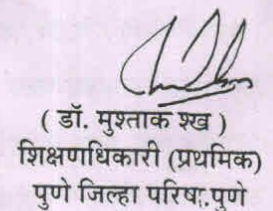 ( डॉ. मुश्ताक श्ख )
शिक्षणाधिकारी (प्रथमिक)
पुणे जिल्हा परिषः.पुणे